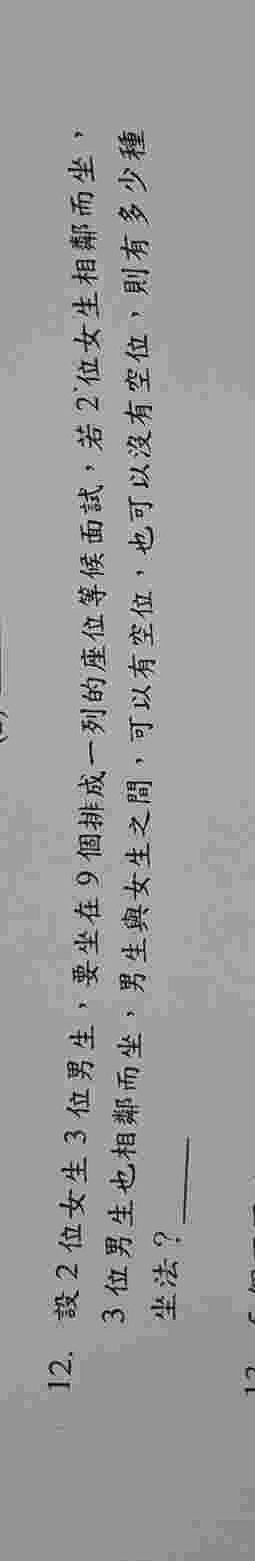 12. 設2位女生3位男生，要坐在9個排成一列的座位等候面試，若2位女生相鄰而坐，
3位男生也相鄰而坐，男生與女生之間，可以有空位，也可以沒有空位，則有多少種
坐法？______